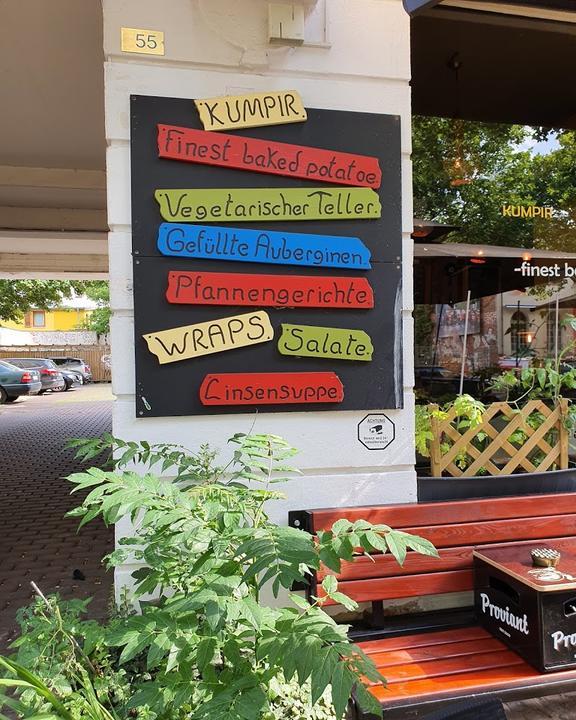 55
KUMPIR
Finest baked potatoe.
Vegetarischer Teller.
Gefüllte Auberginen.
Pfannengerichte.
WRAPS.
Salate.
Linsensuppe.
KUMPIR
-finest b
ACHTUNG
Proviant
Pro